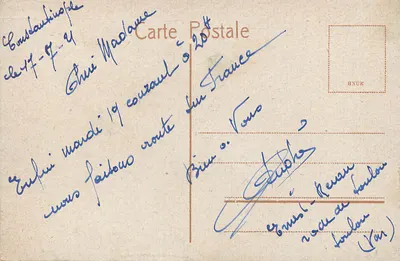 Carte Postale
Constantinople
le 17-7-21
Chère Madame
Enfin mardi 19 courant à 20H
nous faisons route sur France
Bien à Vous
Ernest-Renan
rade de Toulon
Toulon
(Var)